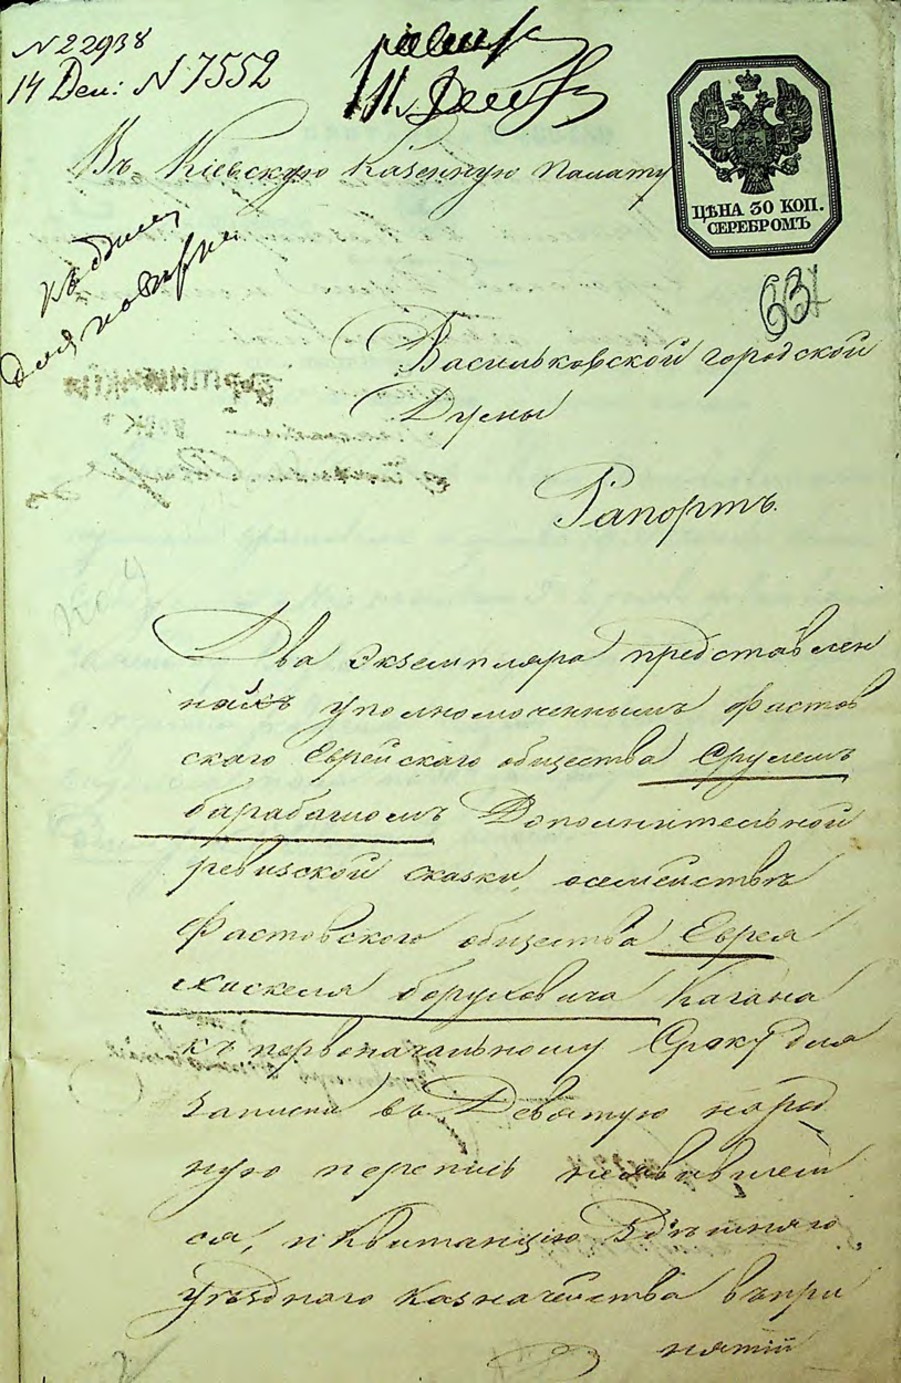 N 22938
14 Дек: N 7552
Въ Кіевскую Казенную Палату
ЦѢНА 30 КОП.
СЕРЕБРОМЪ
для повѣрки
Васильковской городской
Думы
Рапортъ.
Два экземпляра представлен
ныхъ уполномоченнымъ Фастов
скаго Еврейскаго общества Срулемъ
барабашомъ Дополнительной
ревизской сказки, осемействѣ
Фастовского общества Еврея
Хискеля боруховича Кагана
къ первоначальному Сроку для
записки въ Девятую народ
ную перепись неявившем
ся, и Квитанцію Здѣшняго
уѣзднаго Казначейства впри
нятіи